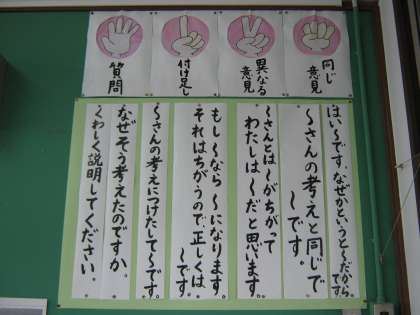 同じ意見
異なる意見
付け足し
質問
はい〜です。なぜかというと〜だからです。
〜さんの考えと同じで〜です。
〜さんとは〜がちがってわたしは〜だと思います。
もし〜なら〜になります。それはちがうので、正しくは〜です。
〜さんの考えにつけたして〜です。
なぜそう考えたのですか。
くわしく説明してください。